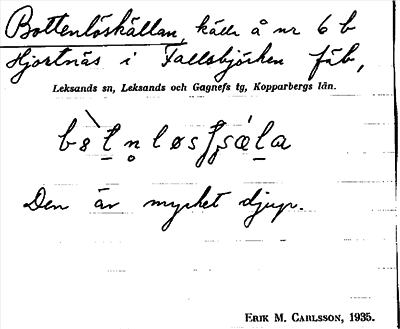 Bottenlöskällan, källa å nr 6 b
Hjortnäs i Fallsbjörken fäb,
Leksands sn, Leksands och Gagnefs tg, Kopparbergs län.
Den är mycket djup.
ERIK M. CARLSSON, 1935.